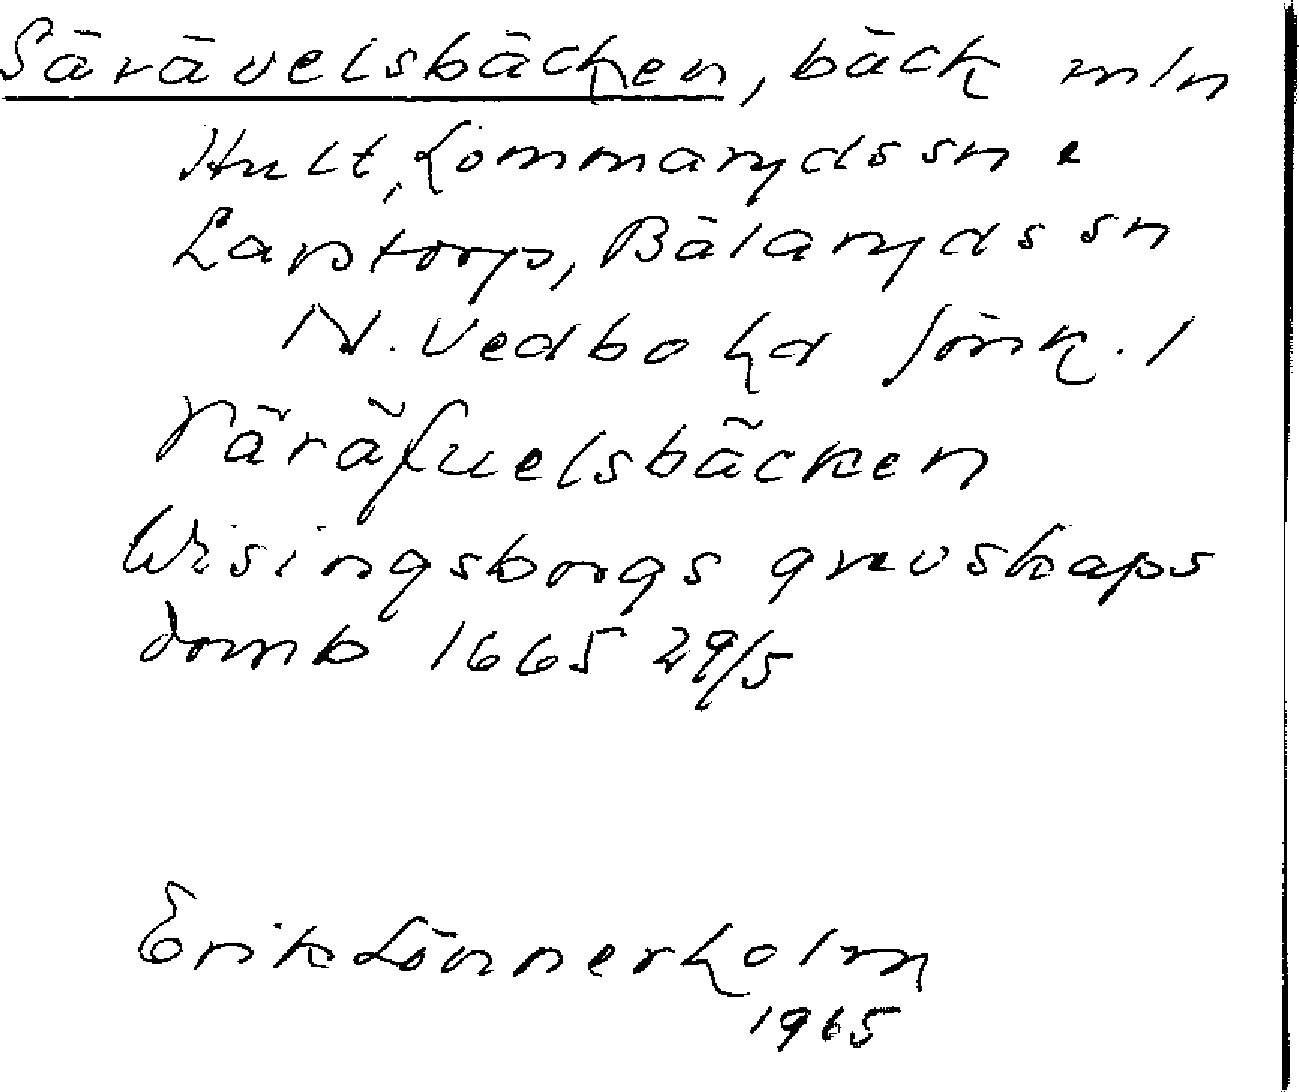 Särävelsbäcken, bäck mln
Hult, Lommaryds sn o
Larstorp, Bälaryds sn
N. Vedbo hd Jönk. l
Säräfuelsbäcken
Wisingsborgs grevskaps
domb 1665 29/5
Erik Lönnerholm
1965